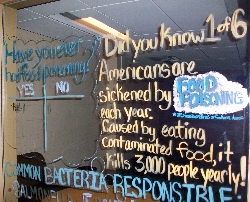 Have you ever
had food poisoning?
YES NO
Did you Know 1 of 6
Americans are
sickened by
FOOD
POISONING
each year.
Caused by eating
contaminated food, it
Kills 3,000 people yearly!
COMMON BACTERIA RESPONSIBLE:
SALMON